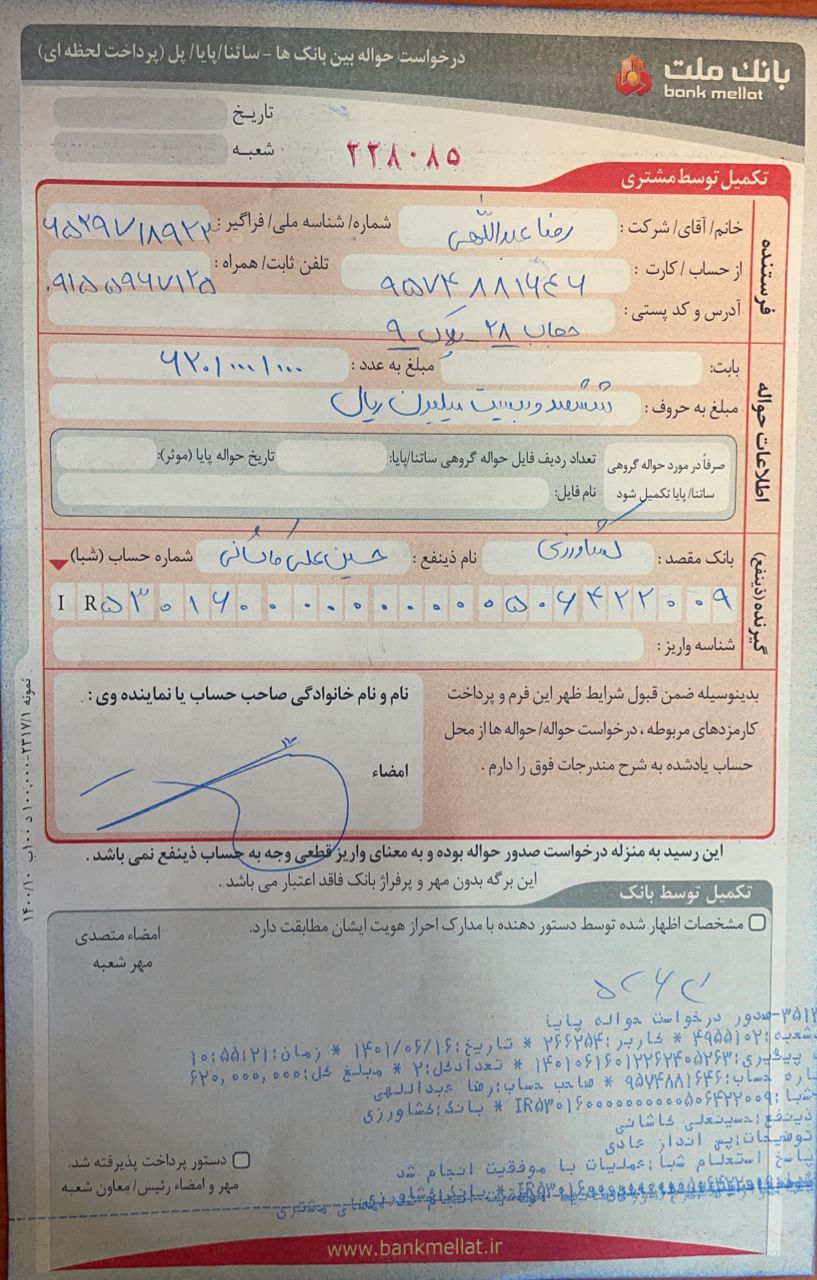 بانک ملت
bank mellat
درخواست حواله بین بانک ها - ساتنا/پایا/ پل (پرداخت لحظه ای)
تاریخ
شعبه
۲۲۸۰۸۵
تکمیل توسط مشتری
فرستنده
خانم/ آقای/ شرکت : رضا عبداللهی شماره/ شناسه ملی/ فراگیر :
از حساب / کارت : ۹۵۷۴۸۸۱۶۴۶ تلفن ثابت/ همراه : ۰۹۱۵۵۹۶۷۱۲۵
آدرس و کد پستی : ۲۸ پلاک ۹
اطلاعات حواله
بابت: مبلغ به عدد : ۶۲۰/۰۰۰/۰۰۰
مبلغ به حروف : ششصد و بیست میلیون ریال
صرفاً در مورد حواله گروهی ساتنا/ پایا تکمیل شود
تعداد ردیف فایل حواله گروهی ساتنا/پایا: تاریخ حواله پایا (موثر):
نام فایل:
گیرنده (ذینفع)
بانک مقصد : کشاورزی نام ذینفع : حسین علی کاشانی شماره حساب (شبا)
IR۵۳۰۱۶۰۰۰۰۰۰۰۰۰۰۰۵۰۶۴۲۲۰۰۹
شناسه واریز :
بدینوسیله ضمن قبول شرایط ظهر این فرم و پرداخت
کارمزدهای مربوطه ، درخواست حواله/ حواله ها از محل
حساب یادشده به شرح مندرجات فوق را دارم .
نام و نام خانوادگی صاحب حساب یا نماینده وی :
امضاء
این رسید به منزله درخواست صدور حواله بوده و به معنای واریز قطعی وجه به حساب ذینفع نمی باشد .
این برگه بدون مهر و پرفراژ بانک فاقد اعتبار می باشد .
تکمیل توسط بانک
مشخصات اظهار شده توسط دستور دهنده با مدارک احراز هویت ایشان مطابقت دارد.
امضاء متصدی
مهر شعبه
صدور درخواست حواله پایا
شعبه:۴۹۵۵۱۰۲ * کاربر:۲۶۶۲۵۴ * تاریخ:۱۴۰۱/۰۶/۱۶ * زمان:۱۰:۵۵:۲۱
پیگیری:۱۴۰۱۰۶۱۶۰۱۲۲۶۲۴۰۵۲۶۳ * تعدادکل:۲ * مبلغ کل:۶۲۰,۰۰۰,۰۰۰
حساب:۹۵۷۴۸۸۱۶۴۶ * صاحب حساب:رضا عبداللهی
شبا:IR۵۳۰۱۶۰۰۰۰۰۰۰۰۰۰۰۵۰۶۴۲۲۰۰۹ * بانک:کشاورزی
ذینفع:حسینعلی کاشانی
توضیحات:پس انداز عادی
پاسخ استعلام شبا:عملیات با موفقیت انجام شد
دستور پرداخت پذیرفته شد.
مهر و امضاء رئیس/ معاون شعبه
www.bankmellat.ir
نمونه ۲۳۱۷/۱-۱۰۰,۰۰۰ د ۱۰۰ب ۱۴۰۰/۱۰